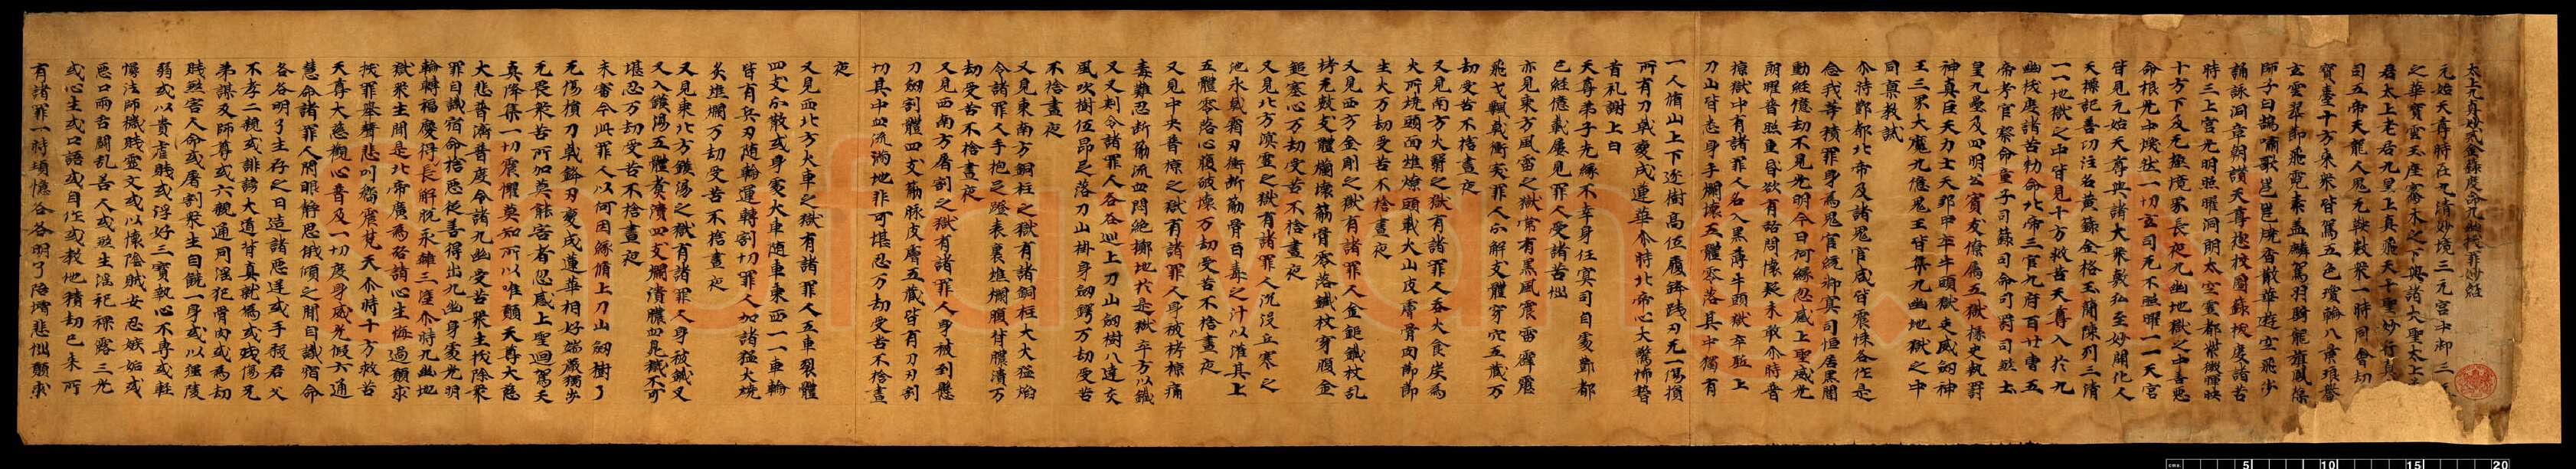 太上元真妙戒金籙度命九幽拔罪妙經
元始天尊時在九清妙境三元宮中御三
之華寶雲玉座騫木之下與諸大聖太上
君太上老君九皇上真飛天千聖妙行真
司五帝天龍人鬼无鞅數眾一時同會劫
寶臺千方來眾皆駕五色瓊輪八景琅轝
玄雲翠軿飛霓素蓋麟駕羽騎龍旂鳳篆
師子白鵠嘯歌邕邕燒香散華遊空飛步
誦詠洞章朝謁天尊
時三上宮光明照曜洞明太空靈都紫微暉映
十方下及无極境界長夜九幽地獄之中善惡
命根光中煥然一切玄司无不照曜一一天宮
皆見元始天尊與諸大眾敷弘至妙開化人
天標記善功注名黃籙金格玉簡陳列三清
一一地獄之中皆見十方救苦天尊入於九
幽拔度諸苦勑命北帝三官九府百廿曹五
帝考官察命童子司錄司命司罰司煞土
皇九壘及四明公賓友僚屬五獄掾吏執罰
神真巨天力士天騶甲卒牛頭獄吏威劒神
王三界大魔九億鬼王皆集九幽地獄之中
同稟教誡
尒時酆都北帝及諸鬼官咸皆震悚各作是
念我等積罪身為鬼官統御冥司恒居黑闇
動經億劫不見光明今日何緣忽感上聖威光
朗曜普照重昏欲有諮問懷疑未敢尒時普
掠獄中有諸罪人名入黑簿牛頭獄卒駈上
刀山皆悉身手爛壞五體零落其中獨有
一人循山上下逐樹高伍履鋒踐刃无一傷損
所有刀戟變成蓮華尒時北帝心大驚怖替
首礼謝上白
天尊弟子先緣不幸身任冥司自處酆都
已經億載屢見罪人受諸苦惱
亦見東方風雷之獄常有黑風震雷霹靂
飛戈飄戟衝突罪人分解支體穿穴五藏万
劫受苦不捨晝夜
又見南方火翳之獄有諸罪人吞火食炭為
火所燒頭面燋燎頭戴火山皮膚骨肉即即
生火万劫受苦不捨晝夜
又見西方金剛之獄有諸罪人金鎚鐵杖亂
拷无數支體爛壞筋骨零落鐵杖穿腹金
鎚塞心万劫受苦不捨晝夜
又見北方溟靈之獄有諸罪人沉沒立寒之
池永戟霜刃衝斷筋骨百毒之汁以灌其上
五體零落心腹破壞万劫受苦不捨晝夜
又見中央普掠之獄有諸罪人身被拷掠痛
毒難忍斷筋流血悶絕擲地於是獄卒方以鐵
叉叉刺令諸罪人各各巡上刀山劒樹八達交
風吹樹伍昂足落刀山掛身劒鍔万劫受苦
不捨晝夜
又見東南方銅柱之獄有諸銅柱大大猛焰
令諸罪人手抱足蹬表裏燋爛腹背膿潰万
劫受苦不捨晝夜
又見西南方屠割之獄有諸罪人身被到懸
刀劒割體四支筋脉皮膚五藏皆有刀刃割
切其中血流滿地非可堪忍万劫受苦不捨晝
夜
又見西北方火車之獄有諸罪人五車裂體
四支分散或身處火車隨車東西一一車輪
皆有兵刃隨輪運轉割切罪人加諸猛火燒
炙進爛万劫受苦不捨晝夜
又見東北方鑊湯之獄有諸罪人身被鐵叉
又入鑊湯五體煮潰四支爛潰膿血臭穢不可
堪忍万劫受苦不捨晝夜
未審今此罪人以何因緣循上刀山劒樹了
无傷損刀戟鋒刃變成蓮華相好端嚴獨步
无畏眾苦所加莫能害者忽感上聖迴駕天
真降集一切震懼莫知所以唯願天尊大慈
大悲普濟普度令諸九幽受苦眾生拔除眾
罪自識宿命捨惡從善得出九幽身處光明
輪轉福慶得長解脫永離三塗尒時九幽地
獄眾生聞是北帝廣為咨請心生悔過願求
拔罪舉聲悲叫嚮震梵天尒時十方救苦
天尊大慈觀心普及一切度身威光假六通
慧命諸罪人閉眼靜思俄頃之間自識宿命
各各明了生存之日造諸惡逆或手殺君父
不孝二親或誹謗大道背真就偽或殘傷兄
弟謀及師尊或六親通同淫犯骨肉或為劫
賊煞害人命或屠割眾生自飴一身或以強陵
弱或以貴虐賤或浮好三寶執心不專或輕
慢法師穢賤靈文或以懷陰賊安忍嫉妬或
惡口兩舌鬪亂善人或煞生淫祀裸露三光
或心生或口語或自作或教他積劫已來所
有諸罪一時頓憶各各明了陪增悲惱願求